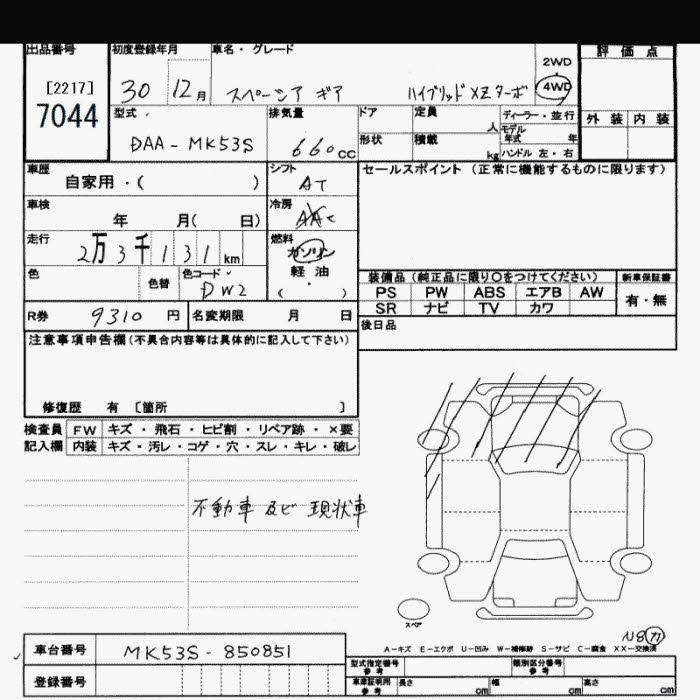 出品番号 初度登録年月 車名・グレード 評価点
[2217] 30 12月 スペーシア ギア ハイブリッドXZターボ 2WD 4WD
7044
型式 排気量 ドア 定員 人 ディーラー・並行 外装 内装
DAA-MK53S 660cc 形状 積載 kg モデル年式 年
ハンドル 左・右
車歴 シフト セールスポイント (正常に機能するものに限ります)
自家用・( ) AT
車検 冷房
年 月( 日) AAC
走行 燃料
2万3千131km ガソリン
色 色替 色コード 軽油 装備品 (純正品に限り○をつけてください) 新車保証書
DW2 ( ・ ) PS PW ABS エアB AW 有・無
R券 9310円 名変期限 月 日 SR ナビ TV カワ
注意事項申告欄(不具合内容等は具体的に記入して下さい) 後日品
修復歴 有 〔箇所 〕
検査員 FW キズ・飛石・ヒビ割・リペア跡・×要
記入欄 内装 キズ・汚レ・コゲ・穴・スレ・キレ・破レ
不動車 及ビ 現状車
スペア
A-キズ E-エクボ U-凹み W-補修跡 S-サビ C-腐食 XX-交換済
車台番号 MK53S-850851
登録番号
型式指定番号 参考 類別区分番号 参考
車庫証明用 参考 長さ cm 幅 cm 高さ cm